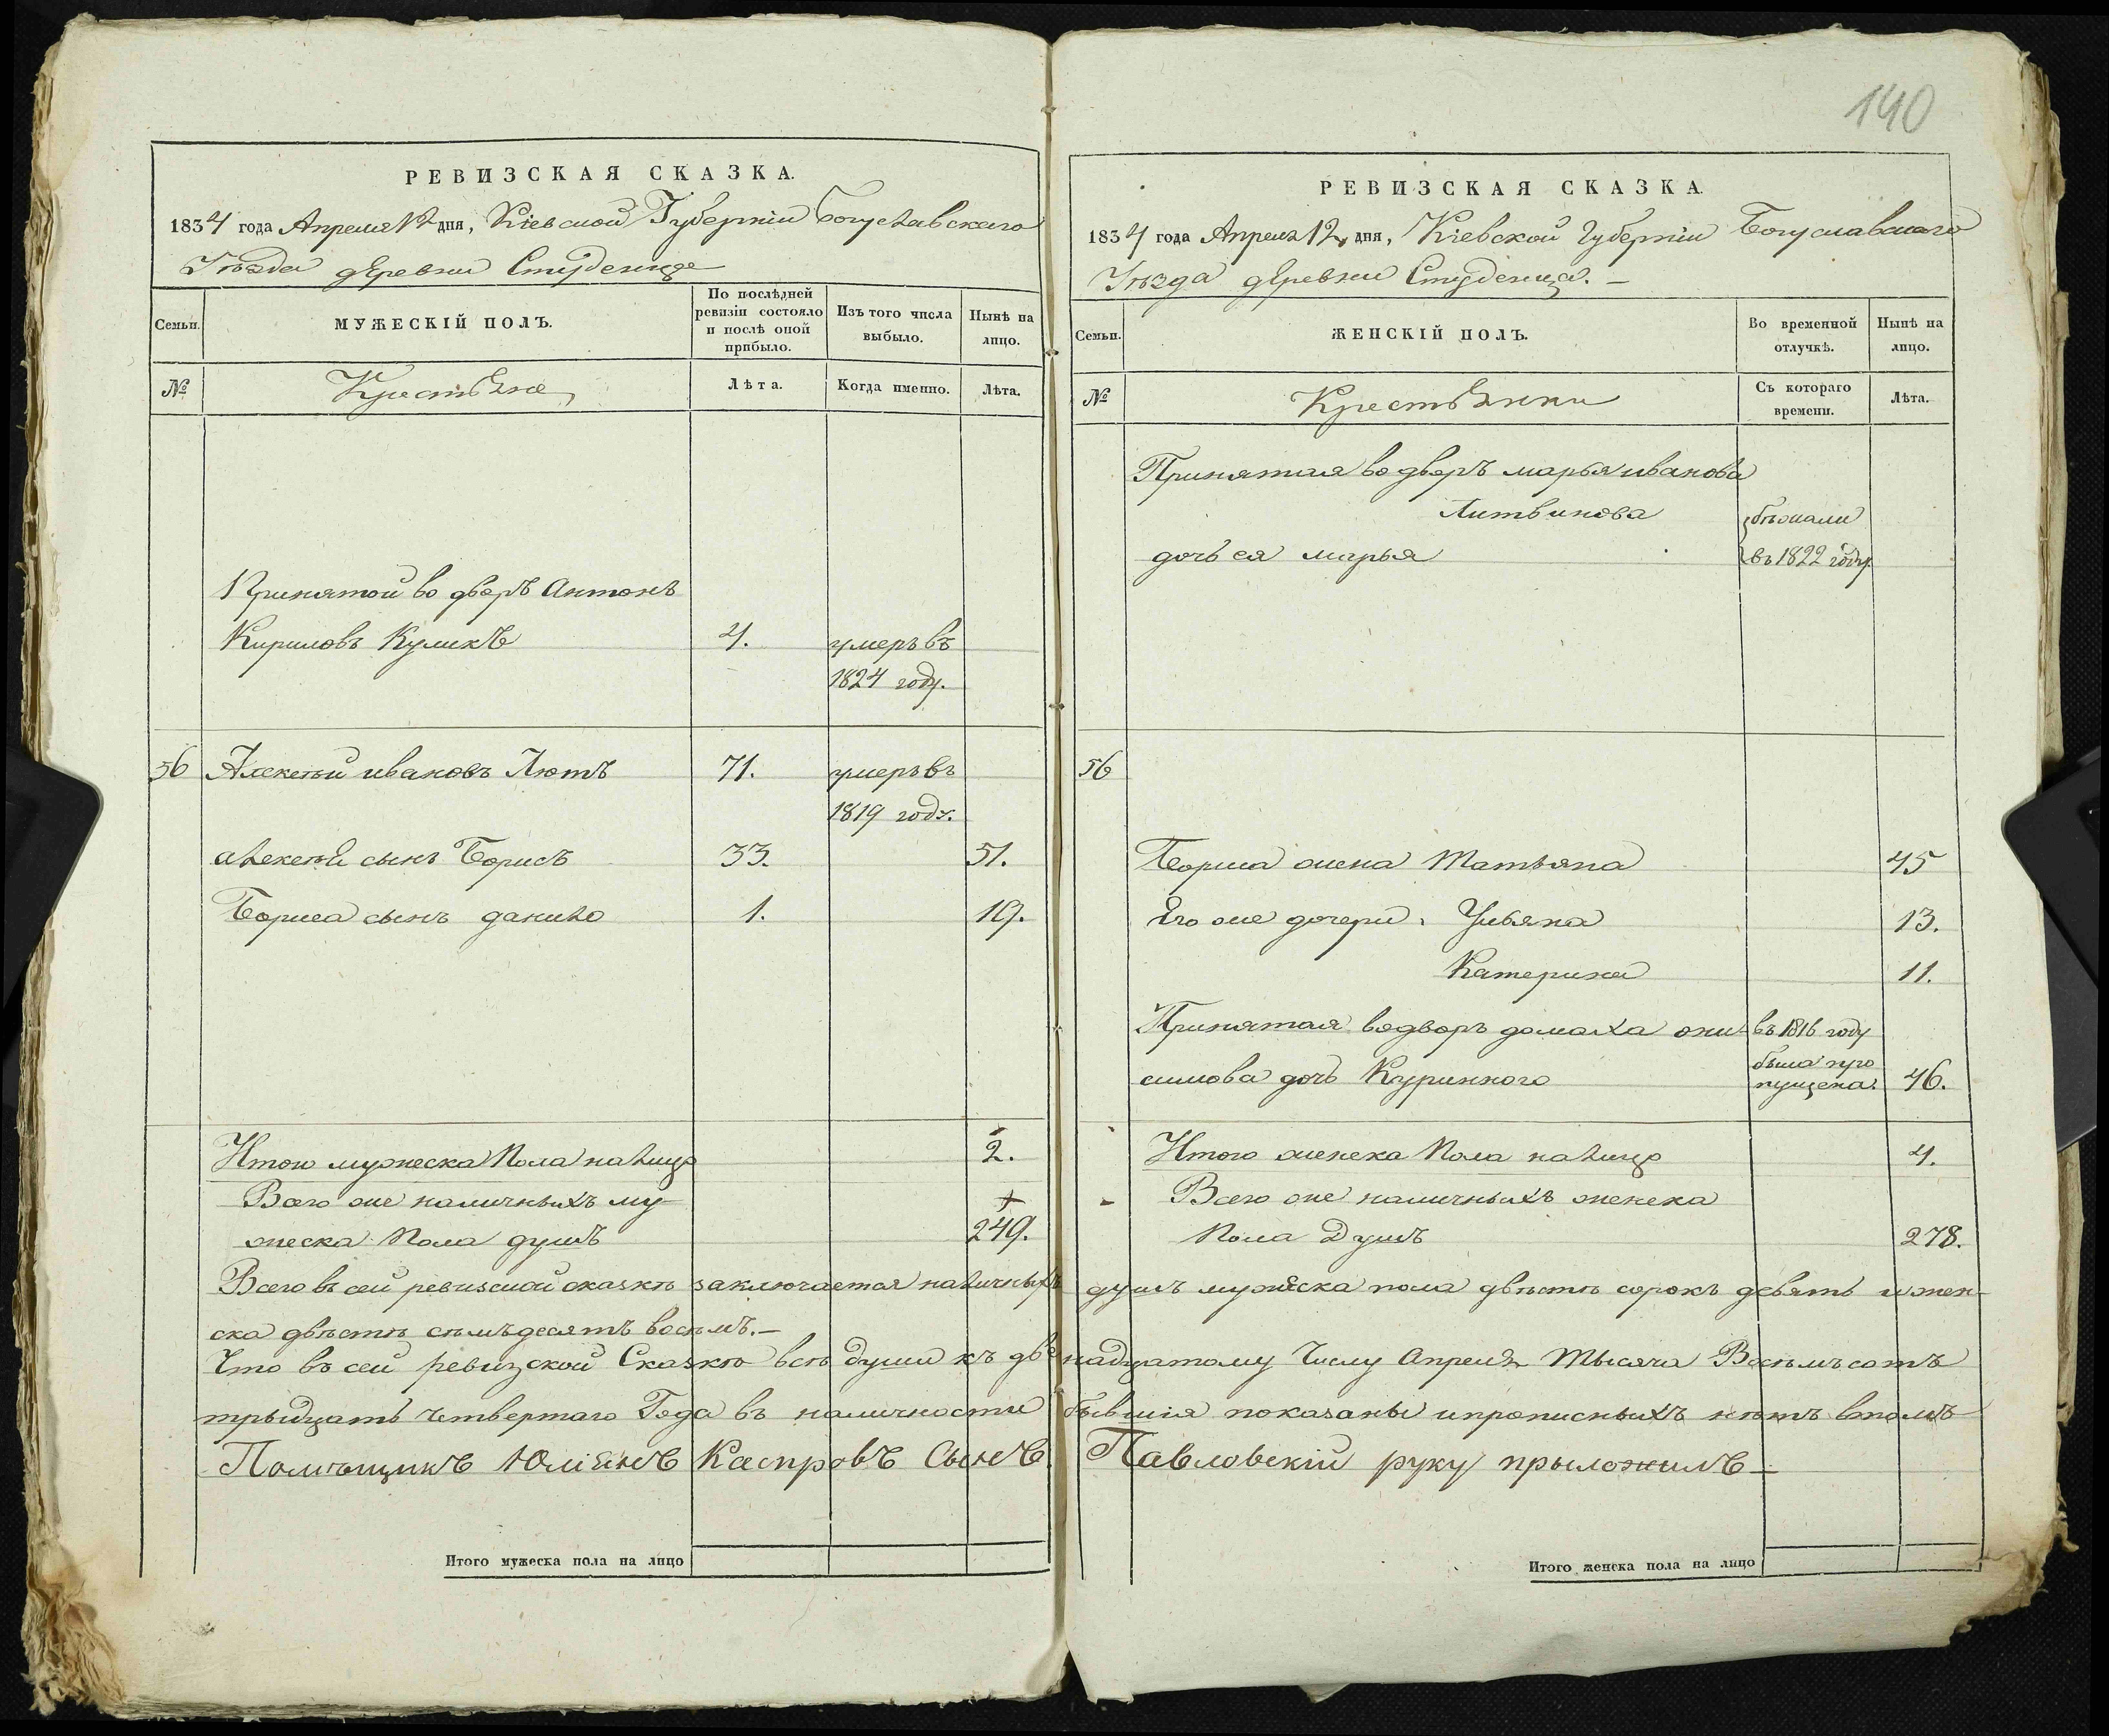 140
РЕВИЗСКАЯ СКАЗКА.
1834 года Апреля 12 дня, Кіевской Губерніи Богуславского
Уѣзда деревни Студенца
Семьи.
МУЖЕСКІЙ ПОЛЪ.
По послѣдней ревизіи состояло и послѣ оной прибыло.
Изъ того числа выбыло.
Нынѣ на лицо.
№
Крестьяне
Лѣта.
Когда именно.
Лѣта.
Принятой во дворъ Антонъ
Кириловъ Куликъ 4. умеръ въ
1824 году.
56 Алексѣй ивановъ Лютъ 71. умеръ въ
1819 году.
алексѣя сынъ Борисъ 33. 51.
Бориса сынъ данило 1. 19.
Итого мужеска Пола налицо 2.
Всего же наличныхъ му
жеска Пола душъ 249.
РЕВИЗСКАЯ СКАЗКА.
1834 года Апреля 12 дня, Кіевской Губерніи Богуславского
Уѣзда деревни Студенца. –
Семьи.
ЖЕНСКІЙ ПОЛЪ.
Во временной отлучкѣ.
Нынѣ на лицо.
№
Крестьянки
Съ котораго времени.
Лѣта.
Принятая во дворъ марья иванова
Литвинова бѣжали
дочь ея марья въ 1822 году
56
Бориса жена Татьяна 45
Его же дочери. Ульяна 13.
Катерина 11.
Принятая водворъ домаха они- въ 1816 году
симова дочь Куринного была про пущена. 46.
Итого женска Пола налицо 4.
Всего же наличныхъ женска
Пола Душъ 278.
Всего въ сей ревизской сказкѣ заключается наличныхъ душъ мужеска пола двѣстѣ сорокъ девять и жен-
ска двѣстѣ сѣмъдесятъ восѣмъ. –
Что въ сей ревизской Сказкѣ всѣ души къ двенадцатому Числу Апреля Тысяча Восѣмъсотъ
трыдцать четвертаго Года въ наличности бывшія показаны ипрописныхъ нѣтъ втомъ
Помѣщикъ Юліянъ Каспровъ Сынъ Павловскій руку прыложилъ –
Итого мужеска пола на лицо
Итого женска пола на лицо